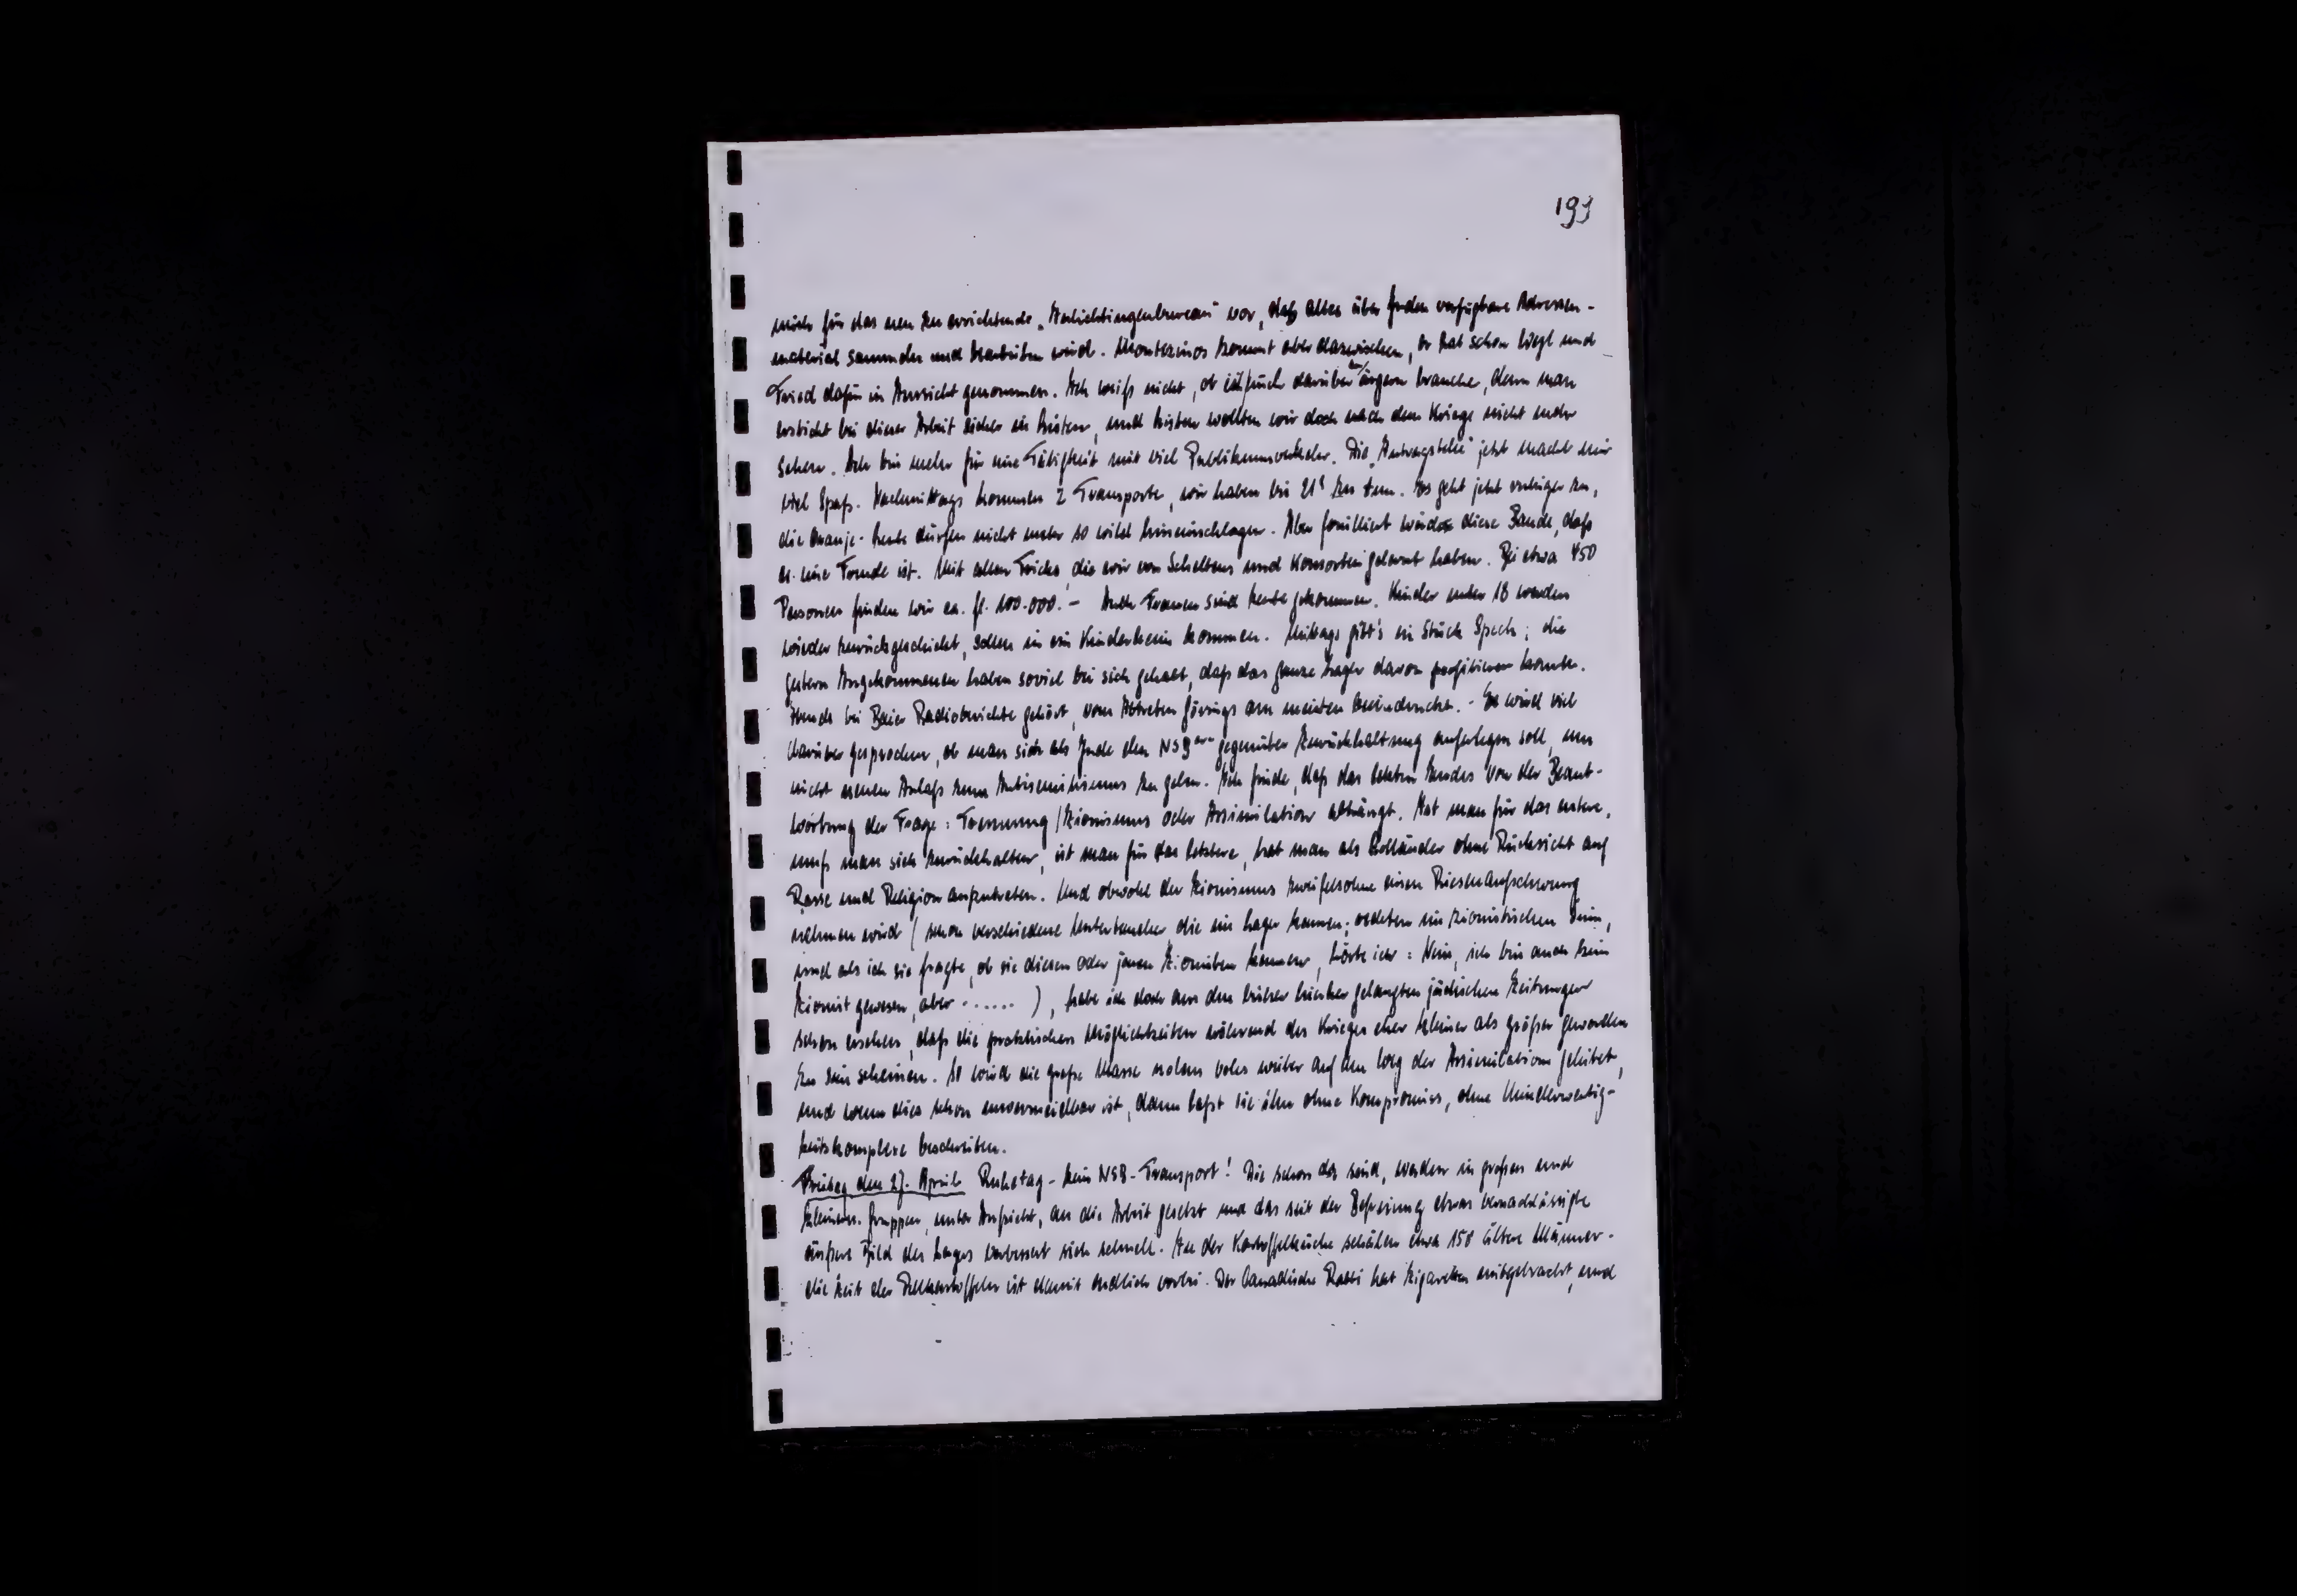 193
mich für das neu zu errichtende „Inlichtingenbureau" vor, das alles über Juden verfügbare Adressen-
material sammeln und bearbeiten wird. Montezinos kommt aber dazwischen, er hat schon und
Fried dafür in Aussicht genommen. Ich weiß nicht, ob ich mich darüber zu ärgern brauche, denn man
erstickt bei dieser Arbeit sicher in Listen, und Listen wollten wir doch nach dem Kriege nicht mehr
sehen. Ich bin mehr für eine Tätigkeit mit viel Publikumsverkehr. Die „Antragstelle" jetzt macht mir
viel Spaß. Nachmittags kommen 2 Transporte, wir haben bis 21 zu tun. Es geht jetzt ruhiger zu,
die Oranje-Leute dürfen nicht mehr so wild hineinschlagen. Aber gefilzt wird diese Bande, daß
es eine Freude ist. Mit allen Tricks, die wir von Scheltens und Konsorten gelernt haben. Bei etwa 450
Personen finden wir ca. fl. 100.000.- Auch Frauen sind heute gekommen. Kinder unter 18 werden
wieder zurückgeschickt, sollen in ein Kinderheim kommen. Mittags gibt's ein Stück Speck; die
gestern Angekommenen haben soviel bei sich gehabt, daß das ganze Lager davon profitieren konnte.
Abends bei Beier Radioberichte gehört, vom Abtreten Görings am meisten beeindruckt. - Es wird viel
darüber gesprochen, ob man sich als Jude den NSBern gegenüber Zurückhaltung auferlegen soll, um
nicht neuen Anlaß zum Antisemitismus zu geben. Ich finde, daß das letzten Endes von der Beant-
wortung der Frage: Trennung/Zionismus oder Assimilation abhängt. Ist man für das erstere,
muß man sich zurückhalten, ist man für das letztere, hat man als Holländer ohne Rücksicht auf
Rasse und Religion aufzutreten. Und obwohl der Zionismus zweifelsohne einen Riesenaufschwung
nehmen wird (schon verschiedene Untertaucher die ins Lager kamen, redeten im zionistischen Sinn,
und als ich sie fragte, ob sie diesen oder jenen Zionisten kennen, hörte ich: Nein, ich bin auch kein
Zionist gewesen, aber ......), habe ich doch aus den bisher hierher gelangten jüdischen Zeitungen
schon ersehen, daß die praktischen Möglichkeiten während des Krieges eher kleiner als größer geworden
zu sein scheinen. So wird die große Masse nolens volens weiter auf den Weg der Assimilation geleitet,
und wenn dies schon unvermeidbar ist, dann laßt sie ihn ohne Kompromiss, ohne Minderwertig-
keitskomplexe beschreiten.
Freitag den 27. April Ruhetag - kein NSB-Transport! Die schon da sind, werden in großen und
kleinen Gruppen, unter Aufsicht, an die Arbeit gesetzt und das seit der Befreiung etwas vernachlässigte
äußere Bild des Lagers verbessert sich schnell. In der Kartoffelküche schälen etwa 150 ältere Männer.
die Zeit der Pellkartoffeln ist damit endlich vorbei. Der Canadische Rabbi hat Zigaretten mitgebracht, und